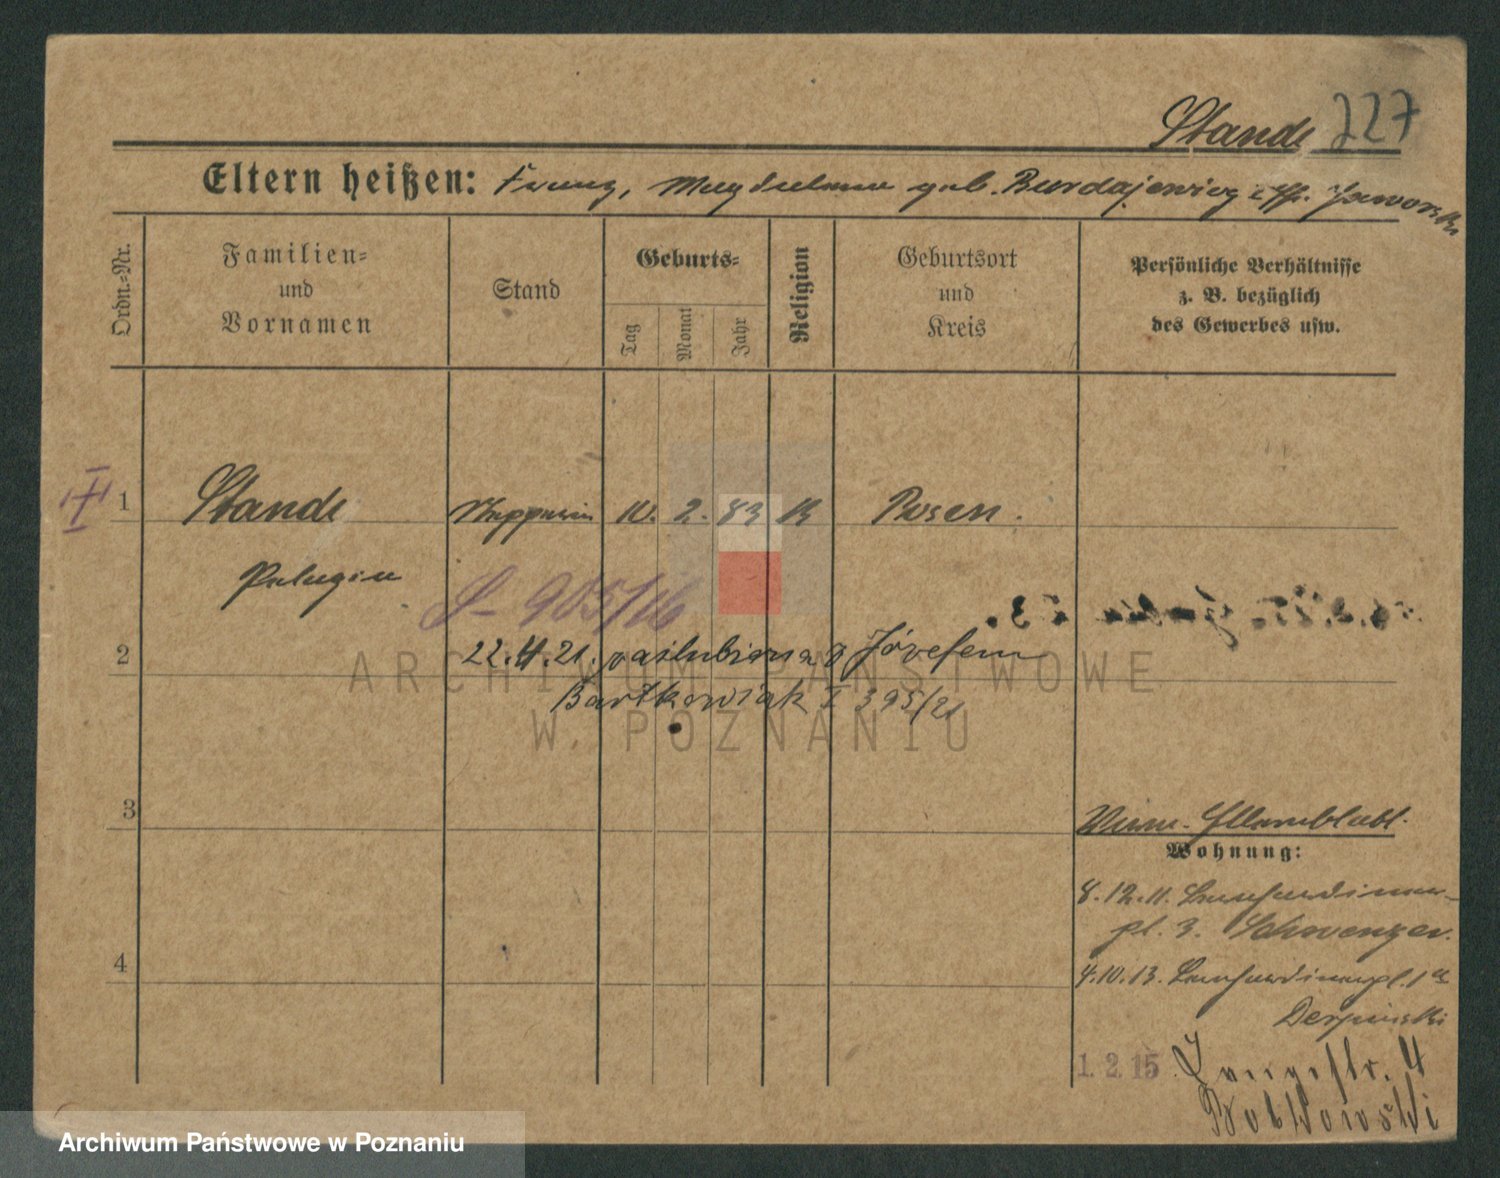 Stande 227
Eltern heißen: Franz, Magdalena geb. Burdajewicz
Ordn.-Nr.
Familien-
und
Vornamen
Stand
Geburts-
Tag
Monat
Jahr
Religion
Geburtsort
und
Kreis
Persönliche Verhältnisse
z. B. bezüglich
des Gewerbes usw.
1 Stande 10. 2. 83 K Posen.
Pelagia
905/16
2 22.4.21. zaślubiona z Józefem
Bartkowiak I 395/21
3
Wohnung:
8.12.11. Bernhardiner-
pl. 3. Schwenzer.
4
4.10.13. Bernhardinerpl. 1a
1.2.15 Langestr. 4
ARCHIWUM PAŃSTWOWE
W POZNANIU
Archiwum Państwowe w Poznaniu